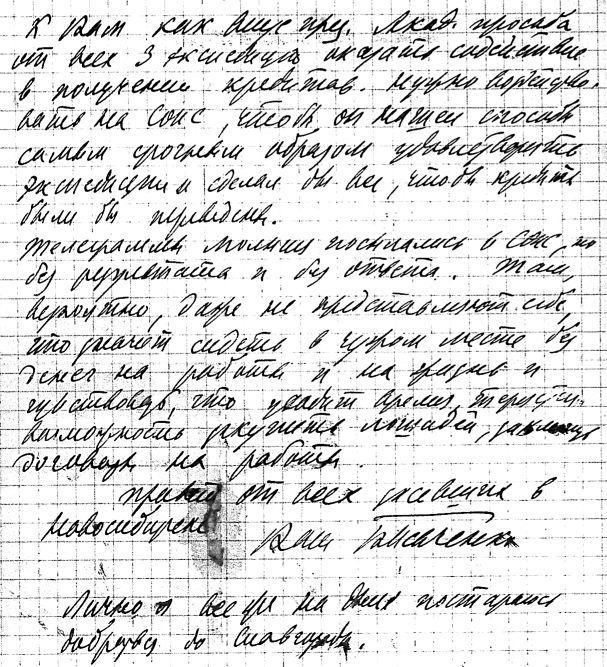 К Вам как Вице през. Акад. просьба
от всех 3 экспедиций оказать содействие
в получении кредитов. Нужно воздейство-
вать на Сопс, чтобы он нашел способы
самым срочным образом удовлетворить
экспедиции и сделал бы все, чтобы кредиты
были бы переведены.
Телеграммы молнии посылались в Сопс, но
без результата и без ответа. Там,
вероятно, даже не представляют себе,
что значит сидеть в чужом месте без
денег на работы и на жизнь и
чувствовать, что уходит время, теряется
возможность закупить лошадей,
договора на работы.
Привет от всех засевших в
Новосибирске
Ваш
Лично я все же на днях постараюсь
добраться до Славгорода.